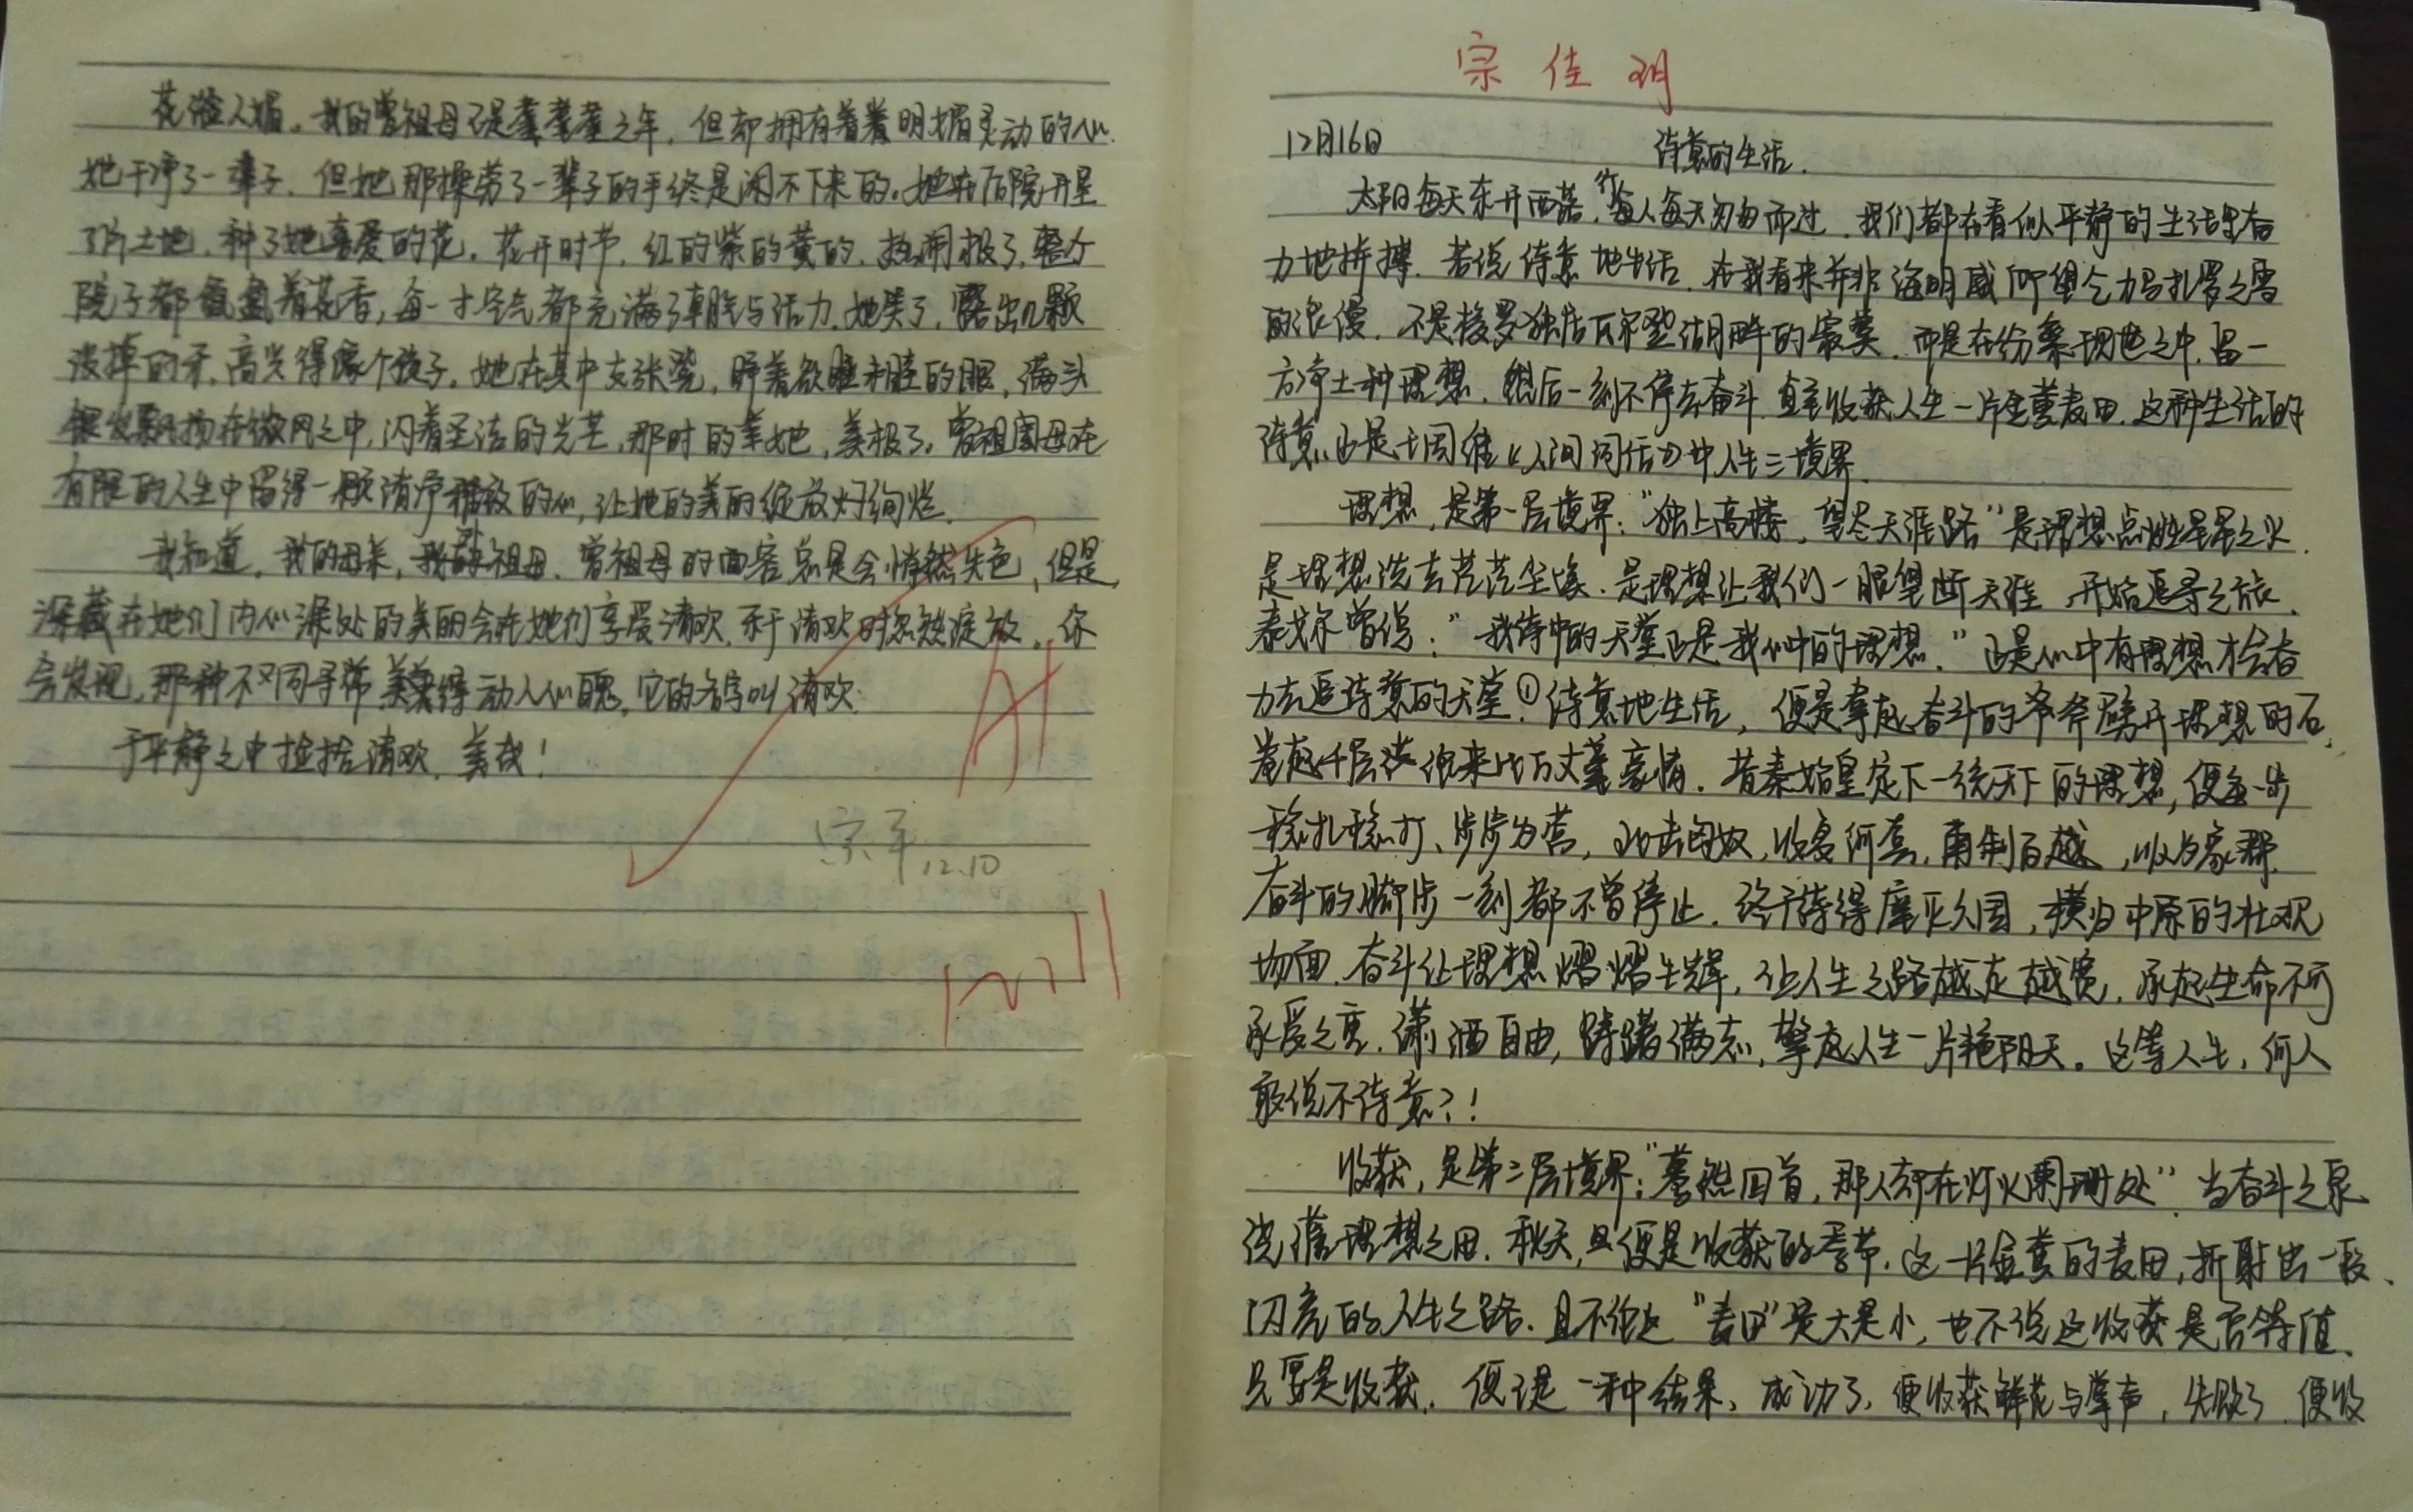 花谢人媚。我的曾祖母已是耄耋之年，但却拥有着着明媚灵动的心.
她干净了一辈子，但她那操劳了一辈子的手终是闲不下来的。她在后院开垦
了片土地，种了她喜爱的花。花开时节，红的紫的黄的，热闹极了，整个
院子都氤氲着花香，每一寸空气都充满了朝气与活力。她笑了，露出几颗
没掉的牙，高兴得像个孩子。她在其中支张凳，眯着欲睡的眼，满头
银发飘扬在微风之中，闪着圣洁的光芒，那时的她，美极了。曾祖母在
有限的人生中留得一颗清净的心，让她的美丽绽放灼绚烂.
我知道，我的母亲，我的外祖母、曾祖母的面容总是会悄然失色，但是，
深藏在她们内心深处的美丽会在她们享受清欢，乐于清欢时忽然淀放。你
会发现，那种不同寻常美得动人心魄，它的名字叫清欢.
于平静之中捡拾清欢，美哉！
A+
宗平 12.10
12.11
宗佳玥
12月16日 诗意的生活.
太阳每天东升西落，行人每天匆匆而过，我们都在看似平静的生活里奋
力地拼搏. 若说诗意地生活，在我看来并非海明威仰望乞力马扎罗之雪
的浪漫，不是梭罗独居瓦尔登湖畔的寂寞，而是在纷繁现世之中，留一
方净土种理想，然后一刻不停去奋斗，直至收获人生一片金黄麦田. 这种生活的
诗意，正是王国维《人间词话》中人生三境界.
理想，是第一层境界：“独上高楼，望尽天涯路”是理想点燃星星之火，
是理想洗去茫茫尘埃，是理想让我们一眼望断天涯，开始追寻之旅.
泰戈尔曾说：“我诗中的天堂正是我心中的理想.”正是心中有理想才会奋
力去追诗意的天堂！诗意地生活，便是拿起奋斗的斧劈开理想的石，
卷起千层浪迎来比万丈豪情. 昔秦始皇定下一统天下的理想，便每一步
稳扎稳打、步步为营，北击匈奴，收复河套，南制百越，以为象郡.
奋斗的脚步一刻都不曾停止. 终于待得度灭六国，横扫中原的壮观
场面. 奋斗让理想熠熠生辉，让人生之路越走越宽，承起生命不可
承受之重，潇洒自由，踌躇满志，擎起人生一片艳阳天。这等人生，何人
敢说不诗意？！
收获，是第三层境界：“蓦然回首，那人却在灯火阑珊处”. 当奋斗之泉
浇灌理想之田，秋天，便是收获的季节. 这一片金黄的麦田，折射出一段
闪亮的人生之路. 且不论这“麦田”是大是小，也不说这收获是否等值.
只要是收获，便是一种结果，成功了，便收获鲜花与掌声，失败了，便收